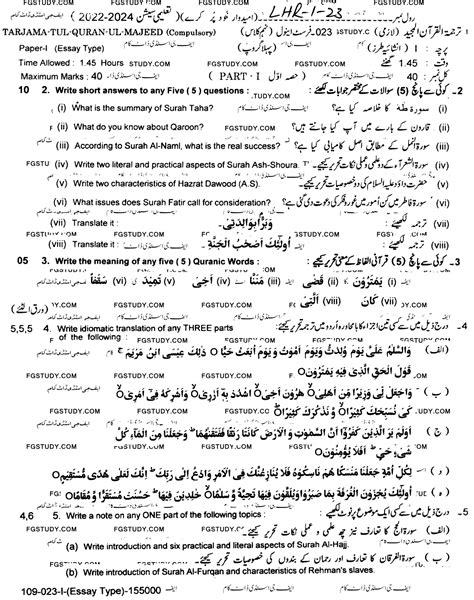 LHR-1-23
رول نمبر (امیدوار خود پُر کرے) (تعلیمی سیشن 2022-2024)
ترجمۃ القرآن المجید (لازمی) 023-فرسٹ اینول (نہم کلاس)
TARJAMA-TUL-QURAN-UL-MAJEED (Compulsory)
پرچہ : I (انشائیہ طرز) (پہلا گروپ)
Paper-I (Essay Type)
وقت : 1.45 گھنٹے
Time Allowed : 1.45 Hours
کل نمبر : 40 (حصہ اول PART - I)
Maximum Marks : 40
10 2. Write short answers to any Five ( 5 ) questions :
2- کوئی سے پانچ (5) سوالات کے مختصر جوابات لکھیے :
(i) What is the summary of Surah Taha?
(i) سورۃ طٰہٰ کا خلاصہ کیا ہے؟
(ii) What do you know about Qaroon?
(ii) قارون کے بارے میں آپ کیا جانتے ہیں؟
(iii) According to Surah Al-Naml, what is the real success?
(iii) سورۃ النمل کے مطابق اصل کامیابی کیا ہے؟
(iv) Write two literal and practical aspects of Surah Ash-Shoura.
(iv) سورۃ الشعرآء کے دو علمی و عملی نکات تحریر کیجیے۔
(v) Write two characteristics of Hazrat Dawood (A.S).
(v) حضرت داؤد علیہ السلام کی دو خصوصیات تحریر کیجیے۔
(vi) What issues does Surah Fatir call for consideration?
(vi) سورۃ فاطر میں کن اُمور میں غور و فکر کی دعوت دی گئی ہے؟
(vii) Translate it :
(vii) ترجمہ لکھیے : وَبَرًّا بِوَالِدَتِیْ۔
(viii) Translate it :
(viii) ترجمہ لکھیے : اُولٰٓئِكَ اَصْحٰبُ الْجَنَّةِ۔
05 3. Write the meaning of any five ( 5 ) Quranic Words :
3- کوئی سے پانچ (5) قرآنی الفاظ کے معنی تحریر کیجیے :
(i) یَمْتَرُوْنَ (ii) قَضٰی (iii) مَنَنَّا (iv) اَخِیْ (v) تَمِیْدَ (vi) سَقْفًا
(vii) كَانَ (viii) الَّتِیْ (ورق الٹیے)
5,5,5 4. Write idiomatic translation of any THREE parts of the following :
4- درج ذیل میں سے کسی تین اجزاء کا بامحاورہ اُردو میں ترجمہ کیجیے :
(الف) وَالسَّلٰمُ عَلَیَّ یَوْمَ وُلِدْتُّ وَیَوْمَ اَمُوْتُ وَیَوْمَ اُبْعَثُ حَیًّا ○ ذٰلِكَ عِیْسَی ابْنُ مَرْیَمَ ۚ
قَوْلَ الْحَقِّ الَّذِیْ فِیْهِ یَمْتَرُوْنَ○
(ب) وَاجْعَلْ لِّیْ وَزِیْرًا مِّنْ اَهْلِیْ○ هٰرُوْنَ اَخِی○ اشْدُدْ بِهٖۤ اَزْرِیْ○ وَاَشْرِكْهُ فِیْۤ اَمْرِیْ○
كَیْ نُسَبِّحَكَ كَثِیْرًا○ وَّنَذْكُرَكَ كَثِیْرًا○
(ج) اَوَلَمْ یَرَ الَّذِیْنَ كَفَرُوْۤا اَنَّ السَّمٰوٰتِ وَالْاَرْضَ كَانَتَا رَتْقًا فَفَتَقْنٰهُمَا ؕ وَجَعَلْنَا مِنَ الْمَآءِ كُلَّ
شَیْءٍ حَیٍّ ؕ اَفَلَا یُؤْمِنُوْنَ○
(د) لِكُلِّ اُمَّةٍ جَعَلْنَا مَنْسَكًا هُمْ نَاسِكُوْهُ فَلَا یُنَازِعُنَّكَ فِی الْاَمْرِ وَادْعُ اِلٰی رَبِّكَ ؕ اِنَّكَ لَعَلٰی هُدًی مُّسْتَقِیْمٍ○
(ہ) اُولٰٓئِكَ یُجْزَوْنَ الْغُرْفَةَ بِمَا صَبَرُوْا وَیُلَقَّوْنَ فِیْهَا تَحِیَّةً وَّسَلٰمًا○ خٰلِدِیْنَ فِیْهَا ؕ حَسُنَتْ مُسْتَقَرًّا وَّمُقَامًا○
4,6 5. Write a note on any ONE part of the following topics :
5- درج ذیل میں سے کسی ایک موضوع پر نوٹ لکھیے :
(الف) سورۃ الحج کا تعارف نیز چھ علمی و عملی نکات تحریر کیجیے۔
(a) Write introduction and six practical and literal aspects of Surah Al-Hajj.
(ب) سورۃ الفرقان کا تعارف اور رحمان کے بندوں کی خصوصیات تحریر کیجیے۔
(b) Write introduction of Surah Al-Furqan and characteristics of Rehman's slaves.
109-023-I-(Essay Type)-155000
FGSTUDY.COM
ایف جی اسٹڈی ڈاٹ کام